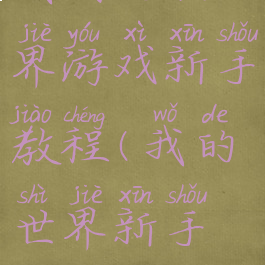 jiè yóu xì xīn shǒu
界游戏新手
jiào chéng wǒ de
教程(我的
shì jiè xīn shǒu
世界新手